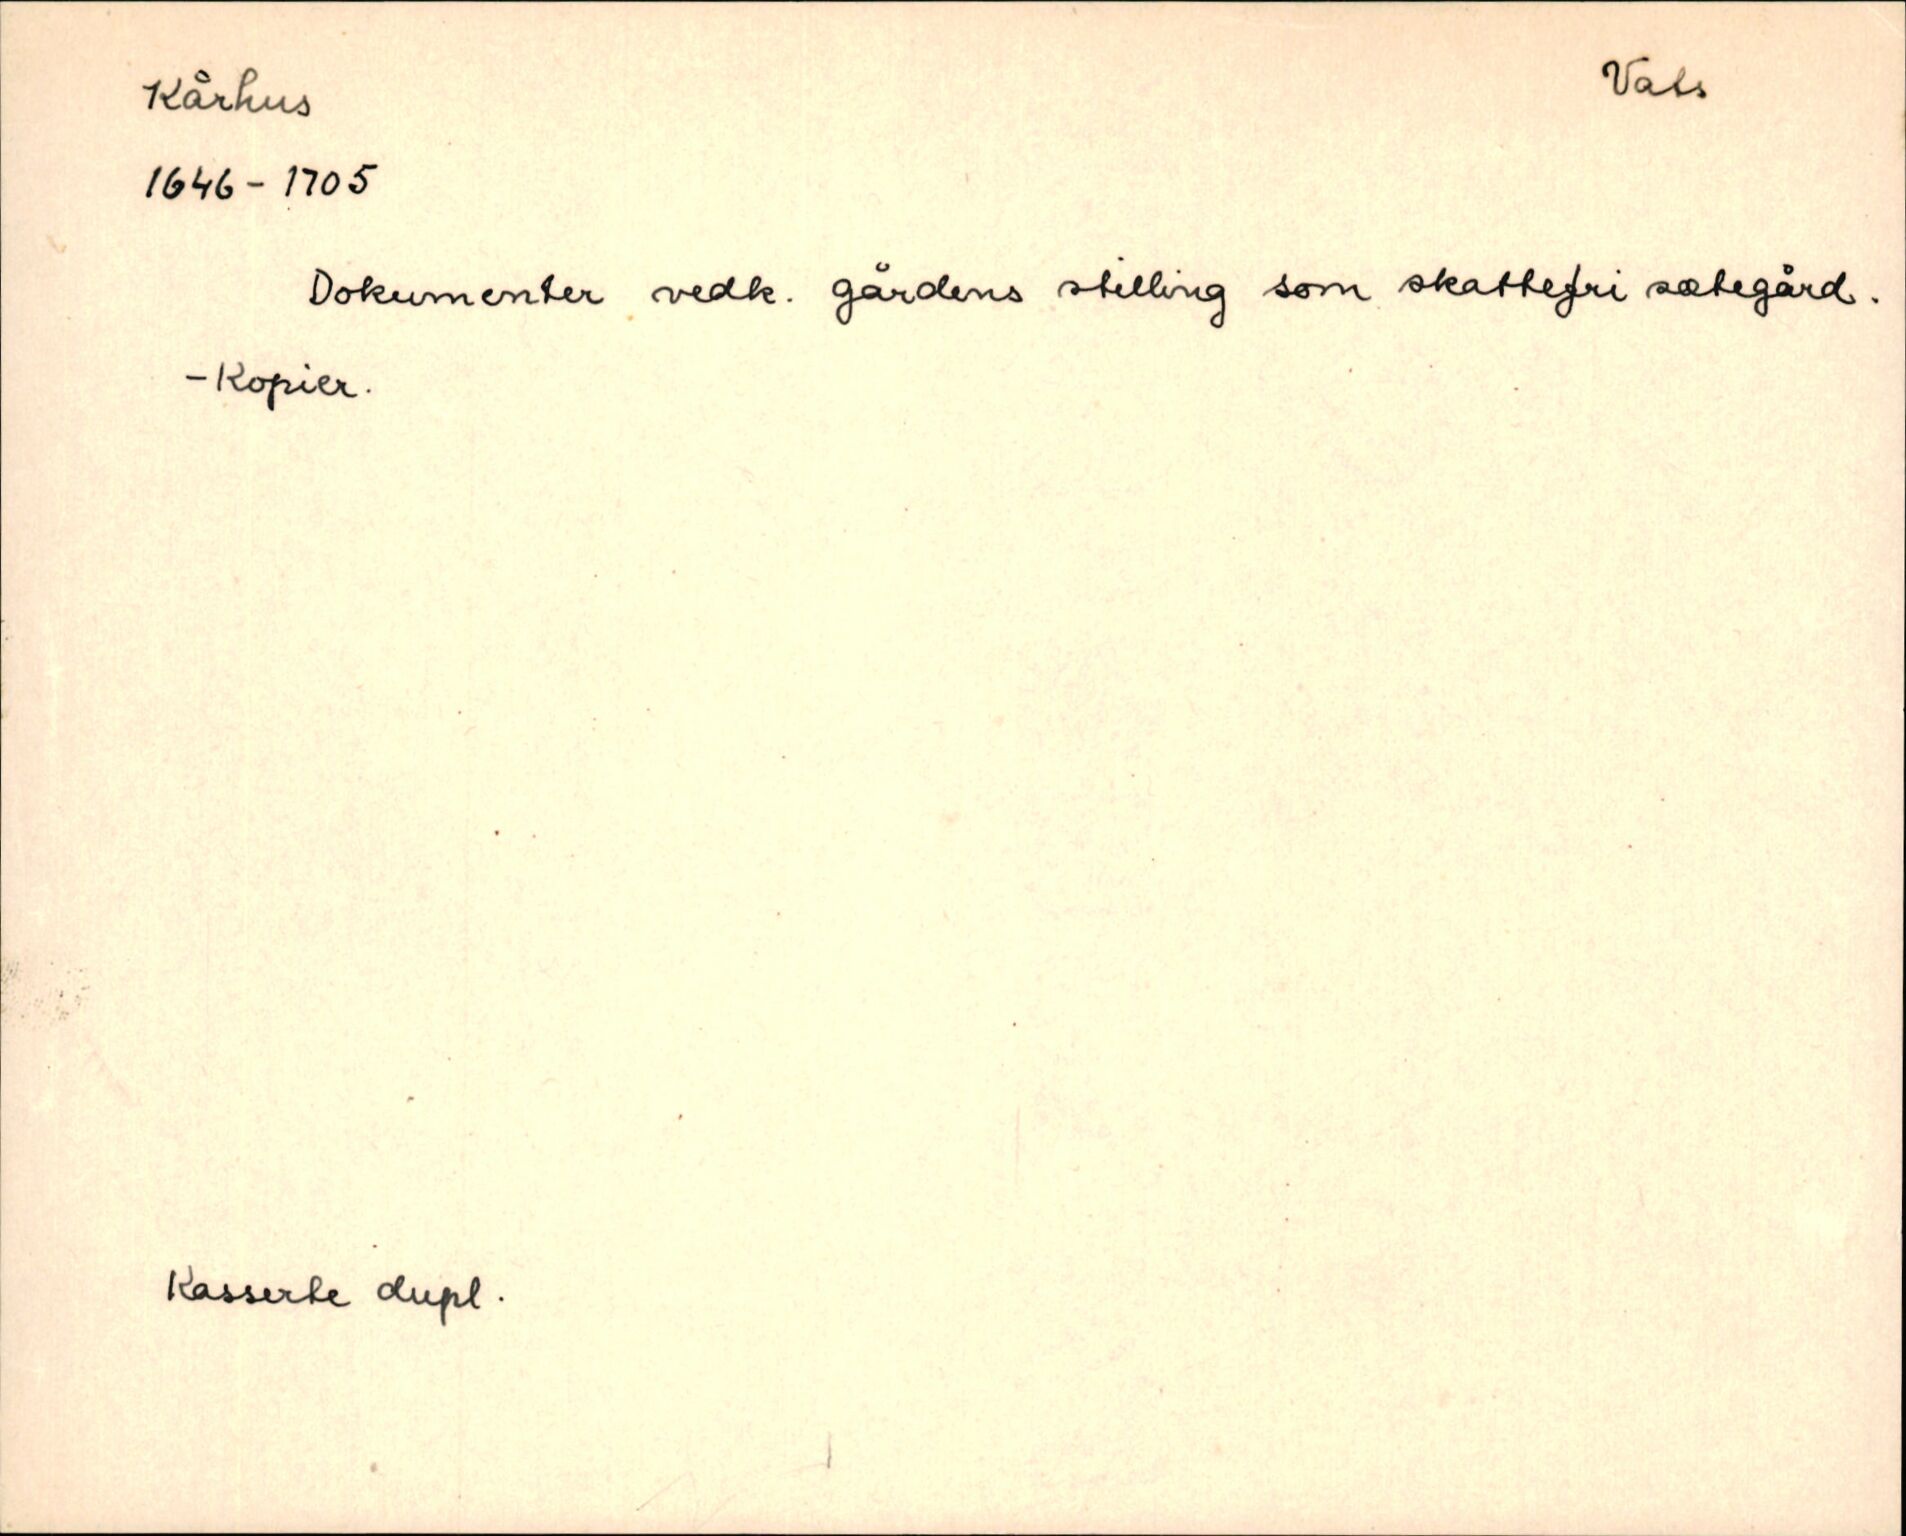 Kårhus
Vats
1646 - 1705
Dokumenter vedk. gårdens stilling som skattefri sætegård.
- Kopier.
Kasserte dupl.